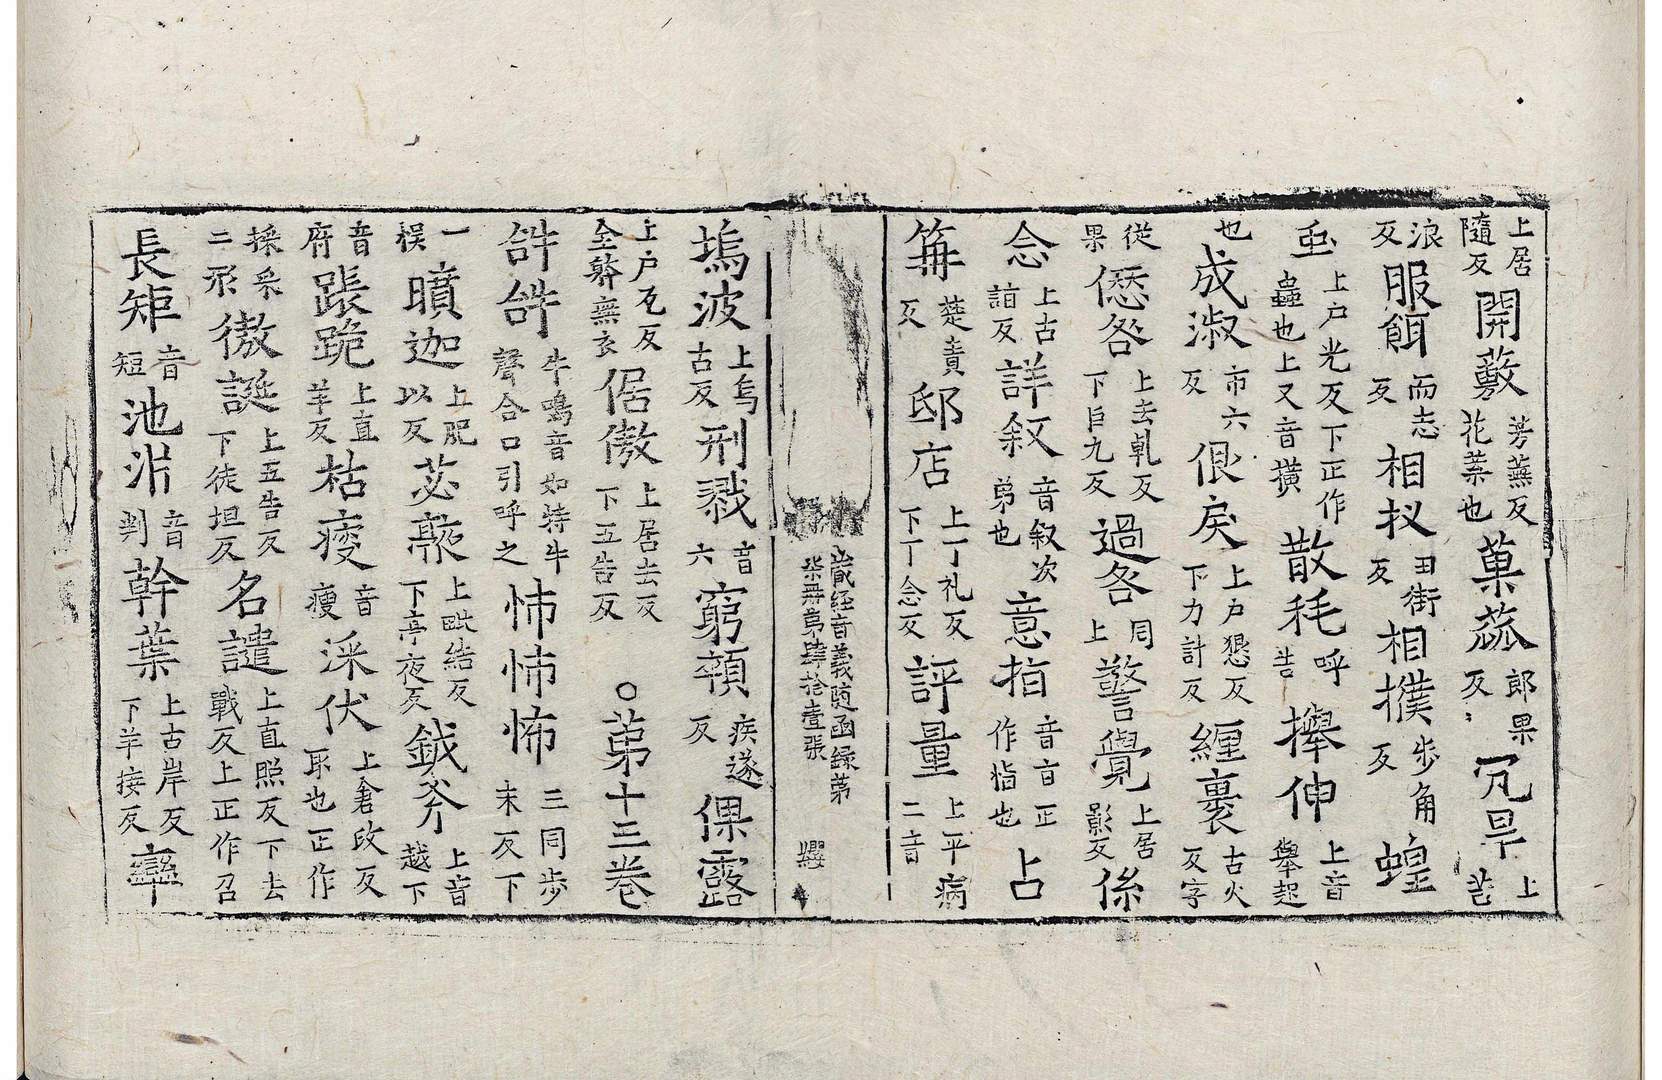 上居隨反開蘤芳蕪反花葉也菓蓏郎果反冗旱上苦
浪反服餌而志反相扠田街反相撲步角反蝗
虫上戶光反下正作蟲也上又音橫散秏呼告攑伸上音舉起
也成淑市六反佷戾上戶懇反下力計反纏裹古火反字
從果僁咎上去乹反下自九反過咎同上警覺上居影反係
念上古詣反詳叙音叙次第也意指音旨正作恉也占
筭楚責反邸店上丁礼反下丁念反評量上平病二音
藏經音義隨函録第柒冊第肆拾壹張 纓
塢波上烏古反刑戮音六窮頓疾遂反倮露
上戶瓦反全躶無衣倨傲上居去反下五告反〇第十三卷
吽吽牛鳴音如特牛聲合口引呼之怖怖怖三同步末反下
一悮曠迦上肥以反苾蒭上毗結反下亭夜反鉞斧上音越下
音府踞跪上直羊反枯瘦音瘦渁伏上倉改反取也正作
採采二形傲誕上五告反下徒坦反名譴上直照反下去戰反上正作召
長矩音短池泮音判幹葉上古岸反下羊接反